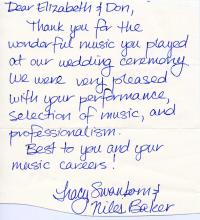 Dear Elizabeth & Don,
Thank you for the
wonderful music you played
at our wedding ceremony.
We were very pleased
with your performance,
selection of music, and
professionalism.
Best to you and your
music careers!
Tracy Swanborn &
Niles Baker